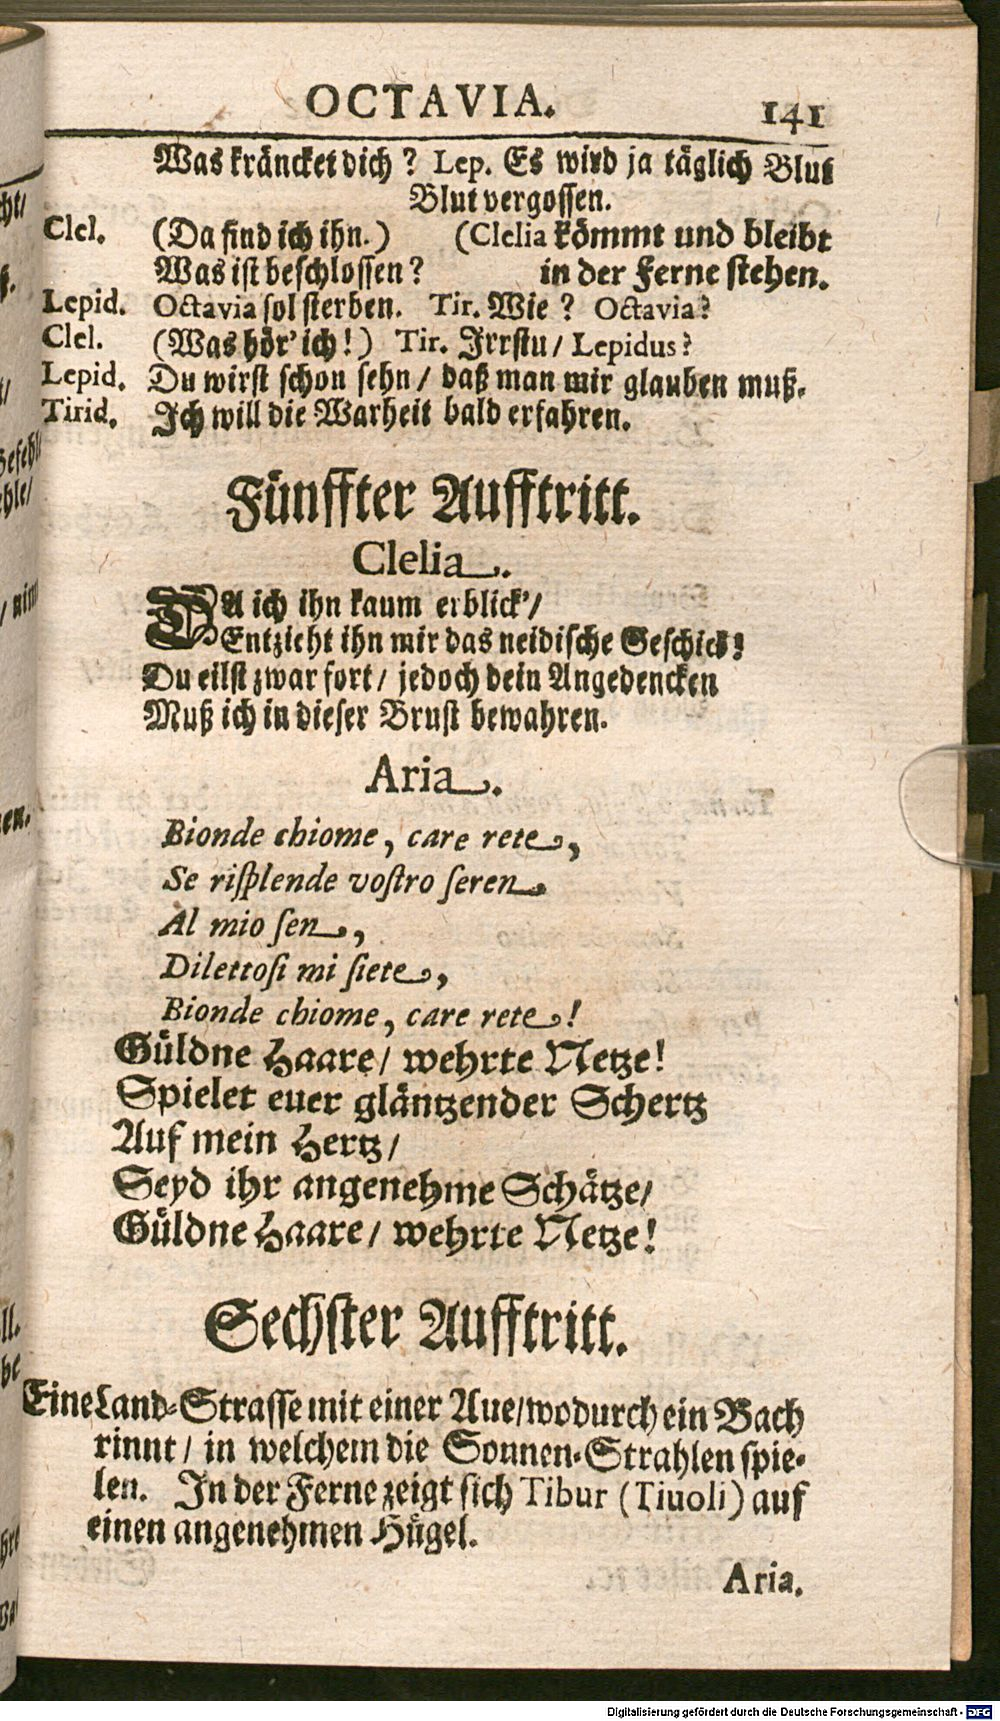 OCTAVIA. 141
Was kräncket dich? Lep. Es wird ja täglich Blut
Blut vergossen.
Clel. (Da find ich ihn.) (Clelia kömmt und bleibt
Was ist beschlossen? in der Ferne stehen.
Lepid. Octavia sol sterben. Tir. Wie? Octavia?
Clel. (Was hör' ich!) Tir. Irrstu/ Lepidus?
Lepid. Du wirst schon sehn/ daß man mir glauben muß.
Tirid. Ich will die Warheit bald erfahren.
Fünffter Aufftritt.
Clelia.
DA ich ihn kaum erblick'/
Entzieht ihn mir das neidische Geschick!
Du eilst zwar fort/ jedoch dein Angedencken
Muß ich in dieser Brust bewahren.
Aria.
Bionde chiome, care rete,
Se risplende vostro seren.
Al mio sen,
Dilettosi mi siete,
Bionde chiome, care rete!
Güldne Haare/ wehrte Netze!
Spielet euer gläntzender Schertz
Auf mein Hertz/
Seyd ihr angenehme Schätze/
Güldne Haare/ wehrte Netze!
Sechster Aufftritt.
Eine Land-Strasse mit einer Aue/wodurch ein Bach
rinnt/ in welchem die Sonnen-Strahlen spie-
len. In der Ferne zeigt sich Tibur (Tiuoli) auf
einen angenehmen Hügel.
Aria.
Digitalisierung gefördert durch die Deutsche Forschungsgemeinschaft - DFG